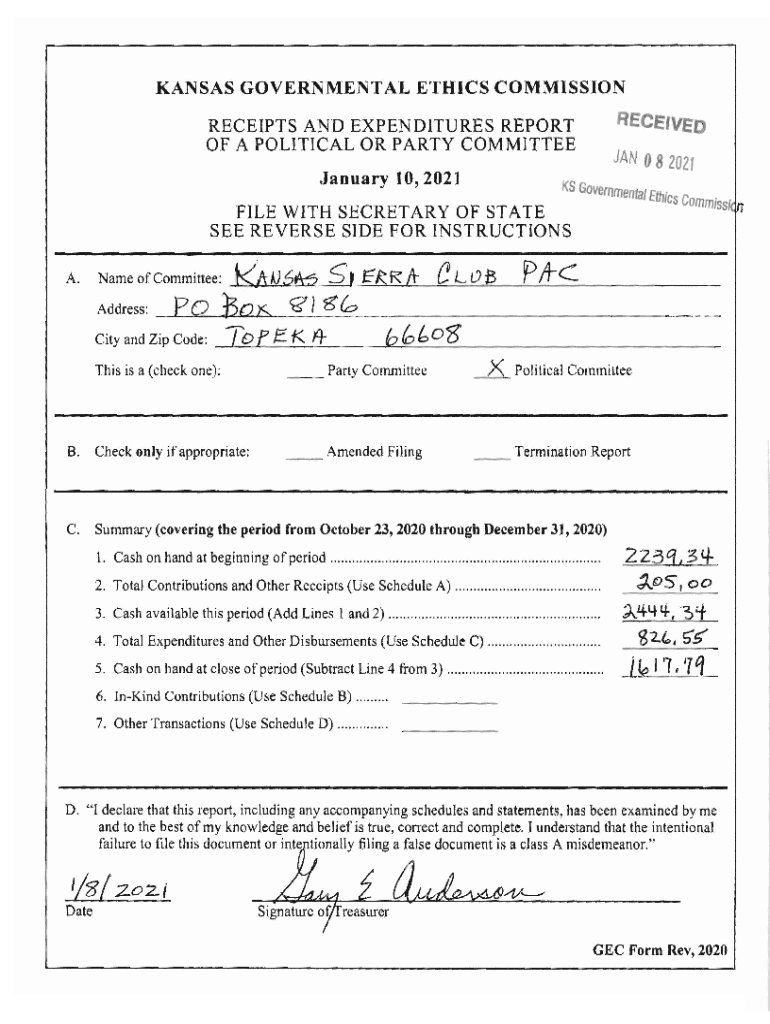 KANSAS GOVERNMENTAL ETHICS COMMISSION
RECEIPTS AND EXPENDITURES REPORT
OF A POLITICAL OR PARTY COMMITTEE
RECEIVED
JAN 08 2021
KS Governmental Ethics Commission
January 10, 2021
FILE WITH SECRETARY OF STATE
SEE REVERSE SIDE FOR INSTRUCTIONS
A. Name of Committee: KANSAS SIERRA CLUB PAC
Address: PO Box 8186
City and Zip Code: TOPEKA 66608
This is a (check one): ____ Party Committee X Political Committee
B. Check only if appropriate: ____ Amended Filing ____ Termination Report
C. Summary (covering the period from October 23, 2020 through December 31, 2020)
1. Cash on hand at beginning of period ........ 2239.34
2. Total Contributions and Other Receipts (Use Schedule A) ........ 205.00
3. Cash available this period (Add Lines 1 and 2) ........ 2444.34
4. Total Expenditures and Other Disbursements (Use Schedule C) ........ 826.55
5. Cash on hand at close of period (Subtract Line 4 from 3) ........ 1617.79
6. In-Kind Contributions (Use Schedule B) ........ ____
7. Other Transactions (Use Schedule D) ........ ____
D. "I declare that this report, including any accompanying schedules and statements, has been examined by me
and to the best of my knowledge and belief is true, correct and complete. I understand that the intentional
failure to file this document or intentionally filing a false document is a class A misdemeanor."
1/8/2021 Gary E Anderson
Date Signature of Treasurer
GEC Form Rev, 2020